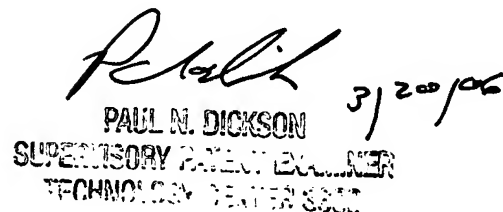 3/200/06
PAUL N. DICKSON
SUPERVISORY PATENT EXAMINER
TECHNOLOGY CENTER